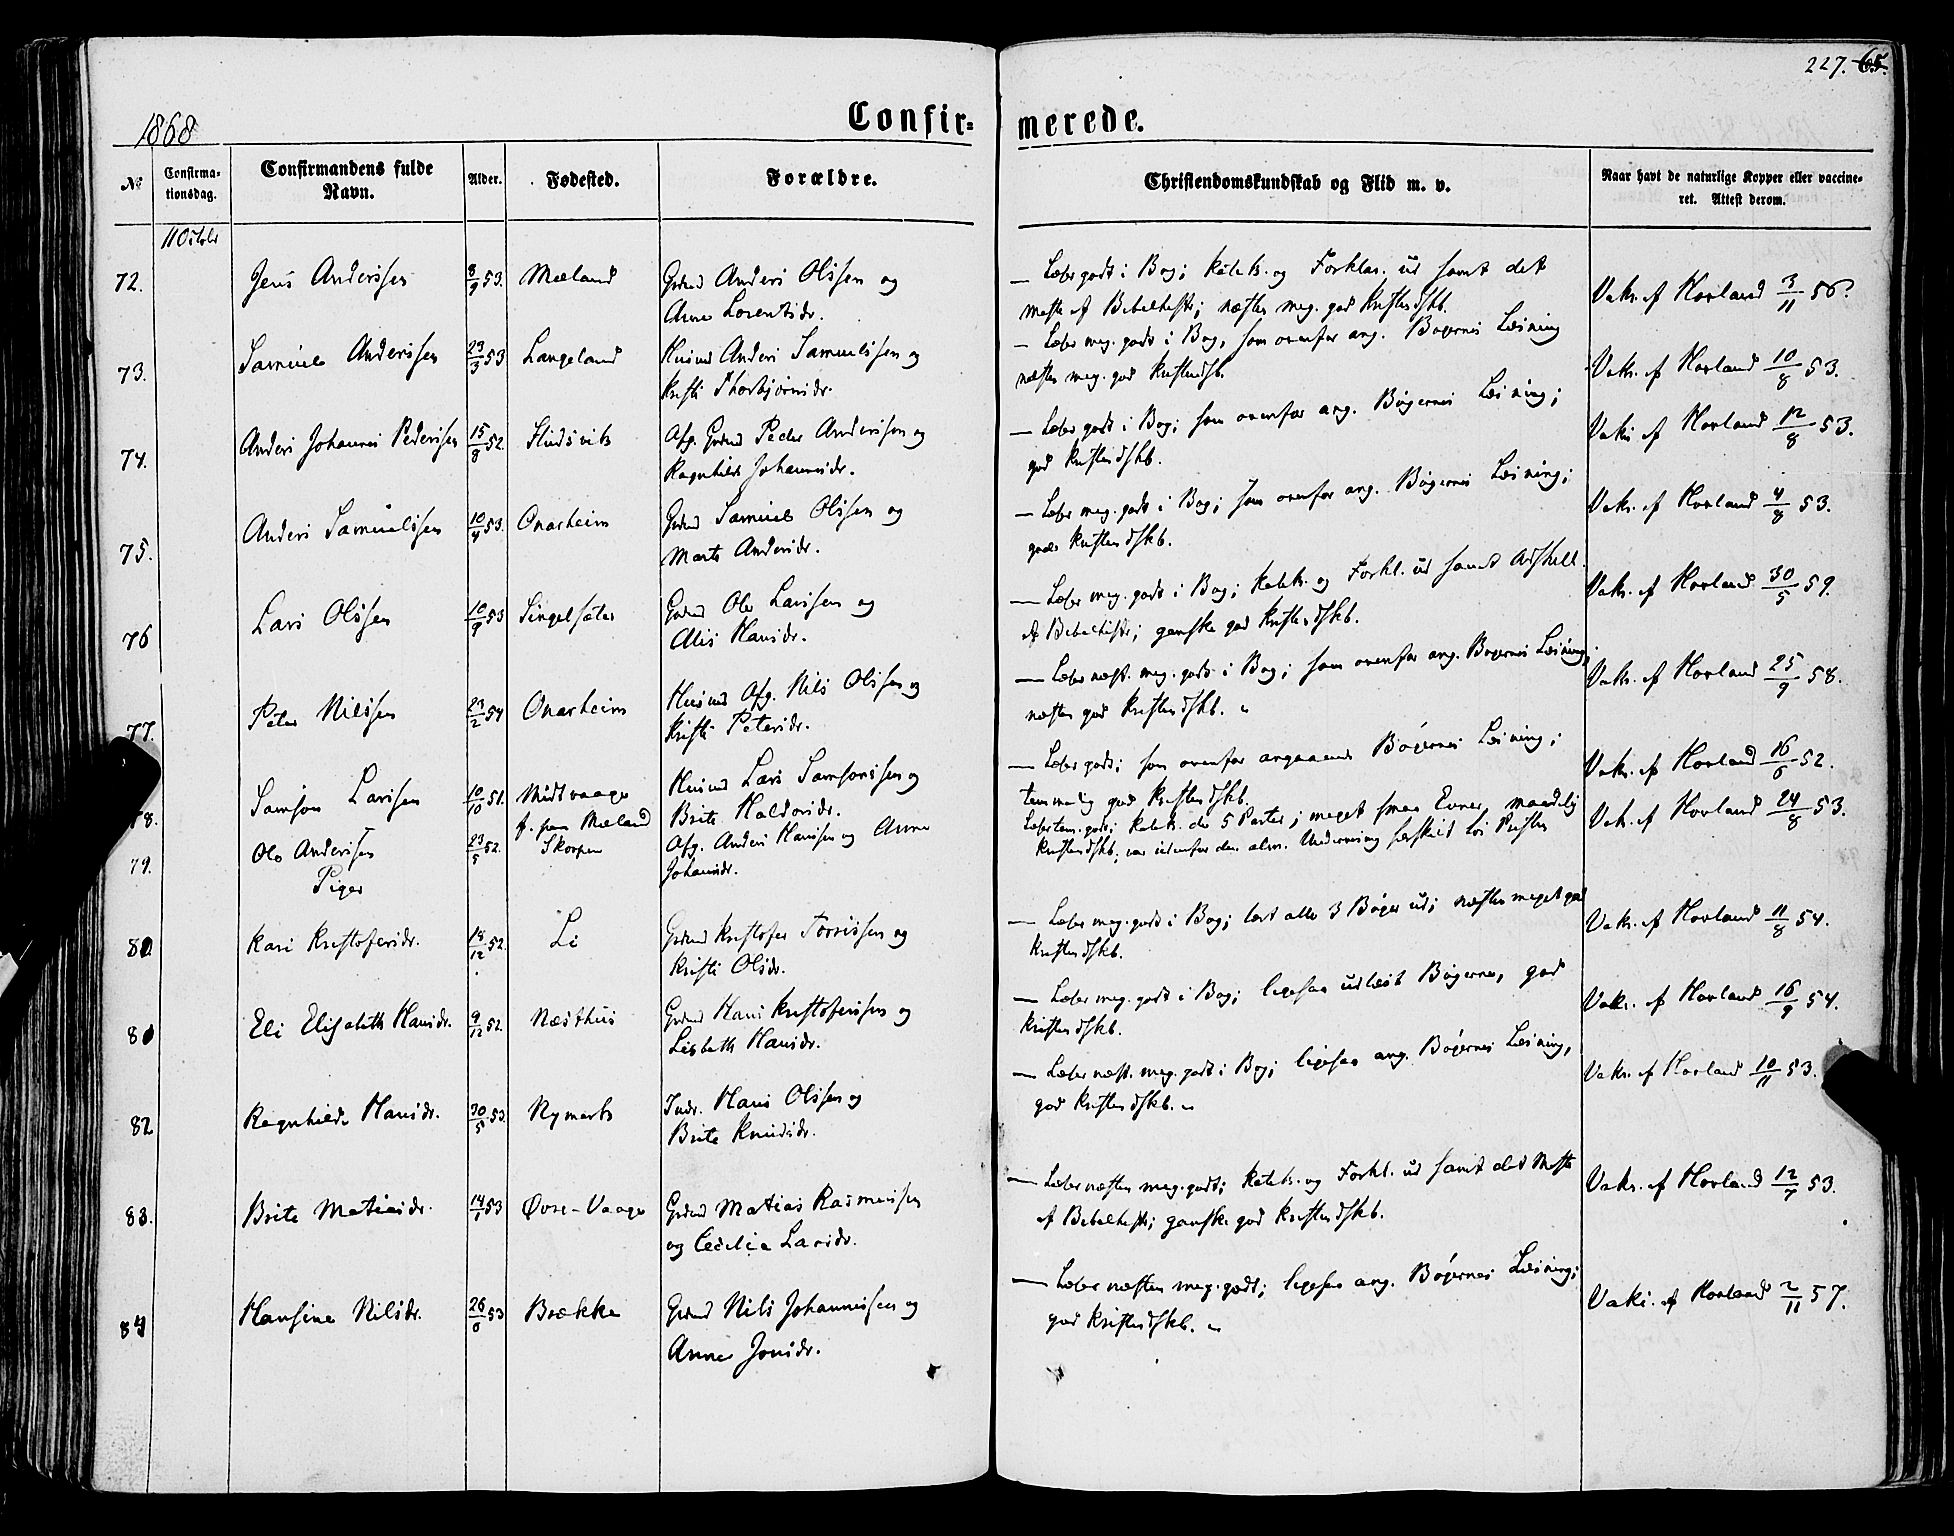 227. 65.
1868
Confir=
merede.
№
Confirma-
tionsdag.
Confirmandens fulde
Navn.
Alder.
Fødested.
Forældre.
Christendomskundskab og Flid m. v.
Naar havt de naturlige Kopper eller vaccine-
ret. Attest derom.
72.
Jens Anderssen
8/9 53.
Mæland
Grdmd Anders Olssen og
Anne Lorentsdr.
— Læser godt i Bog; katek. og Forklar. ud samt det
meste af Bibelhist.; næsten meg. god Kristendskb.
Vakc. af Horland 3/11 56.
73.
Samuel Anderssen
23/3 53
Langeland
Husmd Anders Samuelssen og
Kristi Thorbjørnsdr.
— Læser meg. godt i Bog, som ovenfor ang. Bøgernes Læsning
næsten meg. god Kristendskb.
Vakc. af Horland 10/8 53.
74.
Anders Johannes Pederssen
15/8 52.
Fludsvik
Afg. Grdmd Peder Anderssen og
Ragnhilde Johannesdr.
— Læser godt i Bog; som ovenfor ang. Bøgernes Læsning;
god Kristendskb.
Vakc. af Horland 12/8 53.
75.
Anders Samuelssen
10/4 53.
Onarheim
Grdmd Samuel Olssen og
Marta Andersdr.
— Læser meg. godt i Bog; som ovenfor ang. Bøgernes Læsning;
god Kristendskb.
Vakc. af Horland 4/8 53.
76
Lars Olssen
10/9 53
Singelsæter
Grdmd Ole Larssen og
Alis Hansdr.
— Læser meg. godt i Bog; katek. og Forkl. ud samt Adskill.
af Bibelhist.; ganske god Kristendskb.
Vakc. af Horland 30/5 59.
77.
Peter Nilssen
23/2 54
Onarheim
Husmd Afg. Nils Olssen og
Kristi Petersdr.
— Læser næst. meg. godt i Bog; som ovenfor ang. Bøgernes Læsning;
næsten god Kristendskb.
Vakc. af Horland 25/9 58.
78.
Samson Larssen
10/10 51.
Midtvaage
Husmd Lars Samsonssen og
Brite Haldorsdr.
— Læser godt; som ovenfor angaaende Bøgernes Læsning;
temmelig god Kristendskb.
Vakc. af Horland 16/6 52.
79.
Ole Anderssen
23/5 52.
f. paa Mæland
Skorpen
Afg. Anders Hanssen og Anne
Johannesdr.
Læser tem. godt; katek. de 5 Parter; meget smaa Evner, maadelig
Kristendskb.; var udenfor den alm. Undervisning særskilt hos Præsten
Vakc. af Horland 24/8 53.
Piger
80.
Kari Kristofersdr.
18/12 52.
Li
Grdmd Kristofer Torrissen og
Kristi Olsdr.
— Læser meg. godt i Bog; læst alle 3 Bøger ud; næsten meget god
Kristendskb.
Vakc. af Horland 11/8 54.
81
Eli Elisabeth Hansdr.
9/12 52.
Næsthus
Grdmd Hans Kristoferssen og
Lisbeth Hansdr.
— Læser meg. godt i Bog; ligesaa udlæst Bøgerne, god
Kristendskb.
Vakc. af Horland 16/9 54.
82
Ragnhilde Hansdr.
30/5 53.
Nymark
Indr. Hans Olssen og
Brite Knudsdr.
— Læser næst. meg. godt i Bog; ligesaa ang. Bøgernes Læsning,
god Kristendskb.
Vakc. af Horland 10/11 53.
83.
Brite Matiasdr.
14/1 53
Øvre-Vaage
Grdmd Matias Rasmussen
og Cecilia Larsdr.
— Læser næsten meg. godt; katek. og Forkl. ud samt det Meste
af Bibelhist.; ganske god Kristendskb.
Vakc. af Horland 12/7 53.
84
Hansine Nilsdr.
53
Brække
Grdmd Nils Johannessen og
Anne Jonsdr.
— Læser næsten meg. godt; ligesaa ang. Bøgernes Læsning;
god Kristendskb.
Vakc. af Horland 2/11 57.